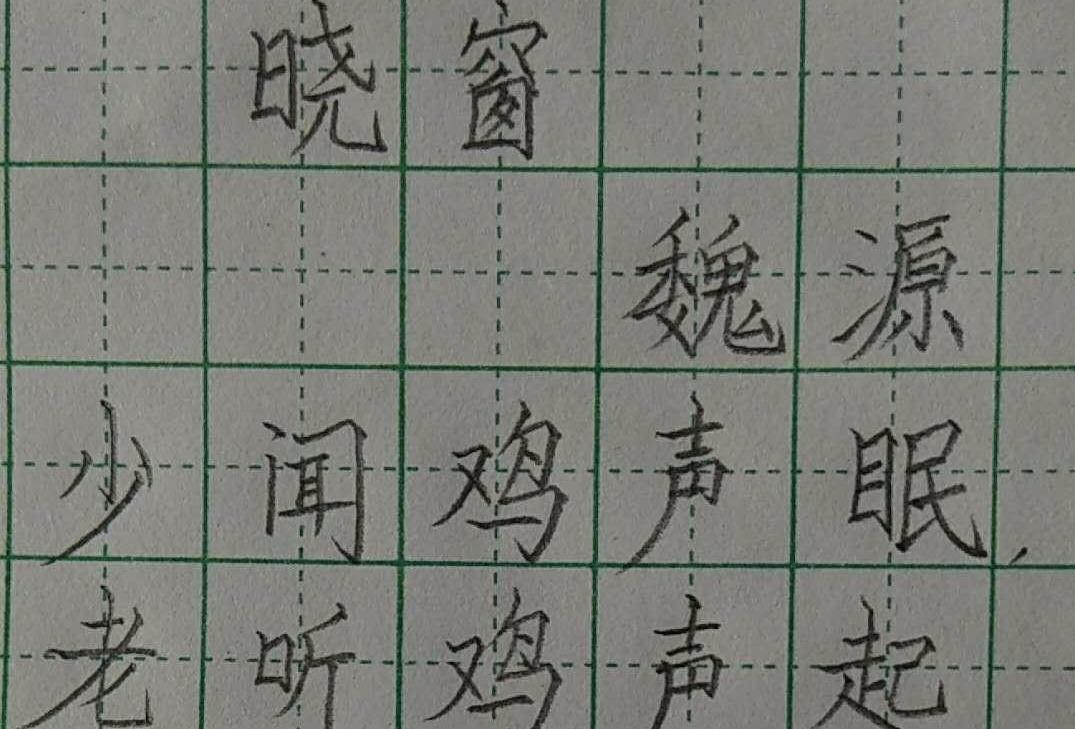 晓窗
魏源
少闻鸡声眠，
老听鸡声起